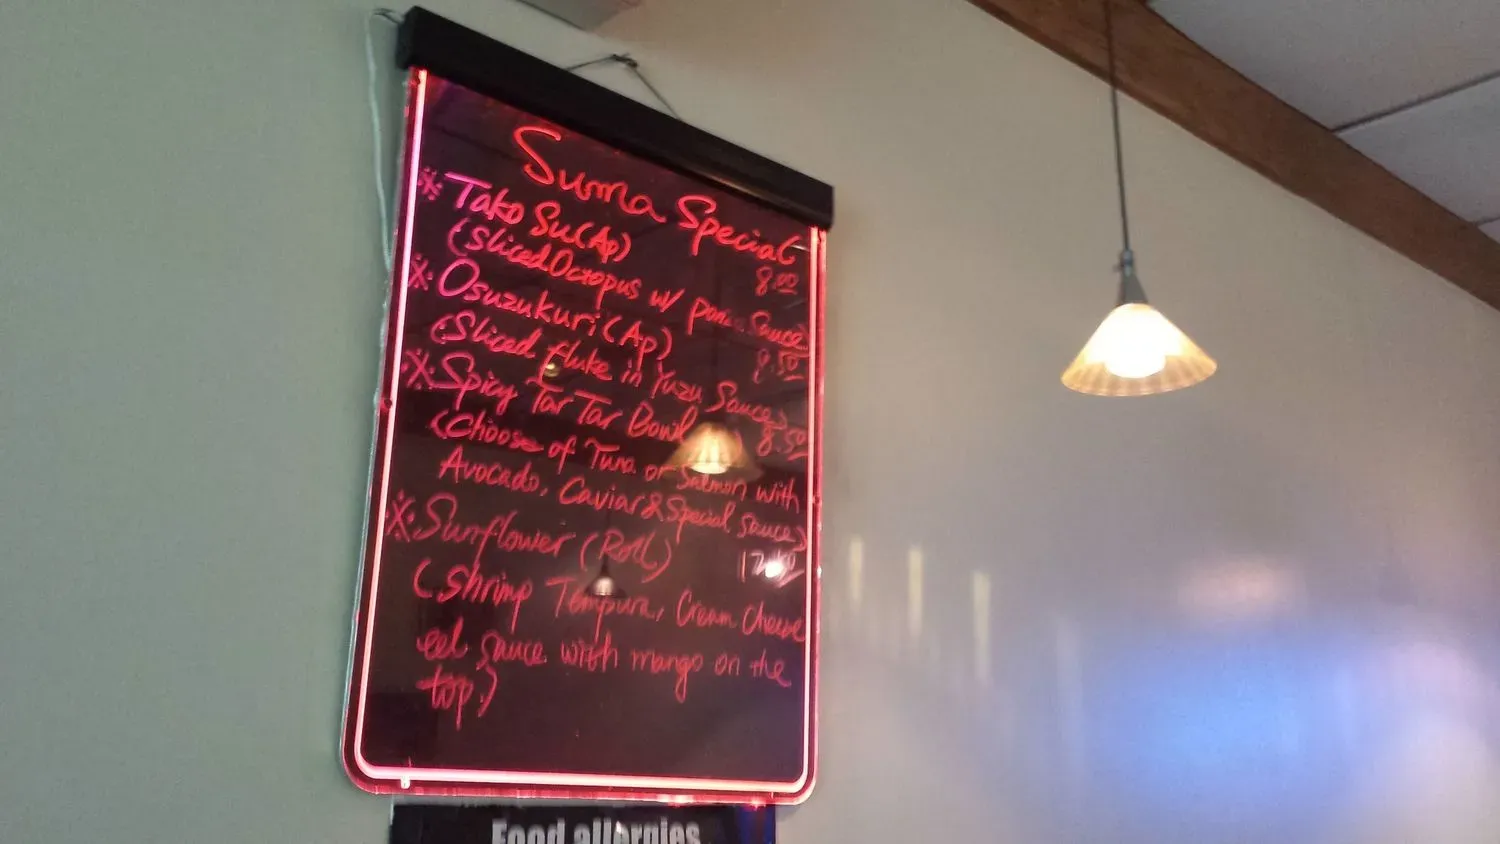 Suma Special
※ Tako Su (Ap) 8.00
(Sliced Octopus w/ Ponzu Sauce)
※ Osuzukuri (Ap) 8.50
(Sliced fluke in Yuzu Sauce)
※ Spicy Tar Tar Bowl 8.50
(Choose of Tuna or Salmon with
Avocado, Caviar & Special sauce)
※ Sunflower (Roll)
(Shrimp Tempura, Cream Cheese
eel sauce with mango on the
top.)
Food allergies